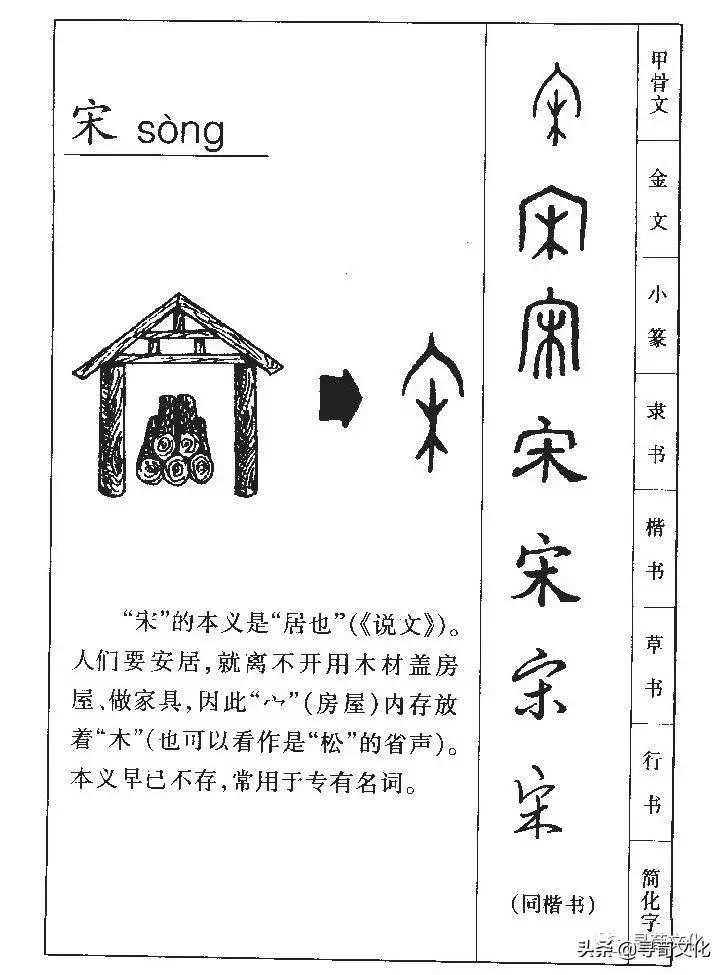 宋 sòng
“宋”的本义是“居也”(《说文》)。
人们要安居,就离不开用木材盖房
屋、做家具,因此“宀”(房屋)内存放
着“木”(也可以看作是“松”的省声)。
本义早已不存,常用于专有名词。
宋
宋
宋
宋
宋
宋
宋
(同楷书)
甲骨文
金文
小篆
隶书
楷书
草书
行书
简化字
头条@寻荀文化